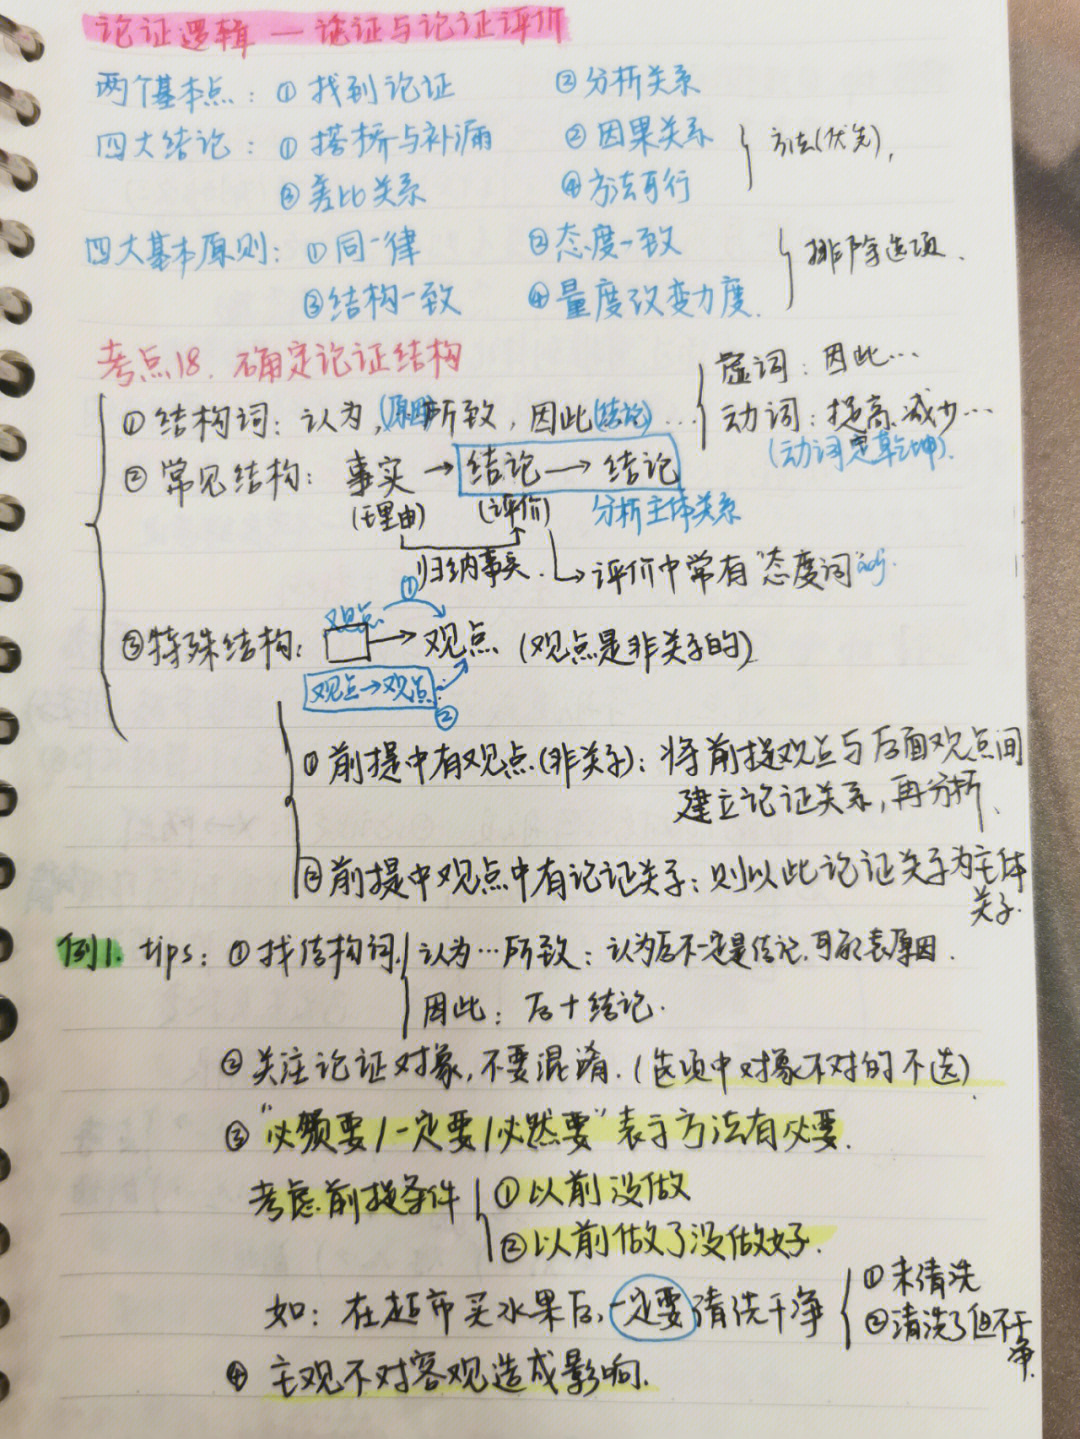 论证逻辑 — 论证与论证评价
两个基本点：① 找到论证 ② 分析关系
四大结论：① 搭桥与补漏 ② 因果关系
③ 差比关系 ④ 方法可行
方法(优先),
四大基本原则：① 同一律 ② 态度一致
③ 结构一致 ④ 量度改变力度.
排除选项.
考点18. 确定论证结构
① 结构词：认为,(原因)所致，因此(结论)…
虚词：因此…
动词：提高.减少…
(动词定乾坤).
② 常见结构：事实→结论→结论
(理由) (评价) 分析主体关系
归纳事实. 评价中常有"态度词"adj.
①
观点
③特殊结构： → 观点 (观点是非关子的)
观点→观点
②
① 前提中有观点(非关子)：将前提观点与后面观点间
建立论证关系,再分析.
② 前提中观点中有论证关子：则以此论证关子为主体
关子.
例1. tips：① 找结构词 认为…所致：认为后不一定是结论.可能表原因.
因此：后+结论.
② 关注论证对象,不要混淆.(选项中对象不对的不选)
③ "必须要/一定要/必然要"表示方法有必要.
考虑前提条件 ① 以前没做
② 以前做了没做好.
如：在超市买水果后,一定要清洗干净
① 未清洗
② 清洗了但不干
净.
④ 主观不对客观造成影响.